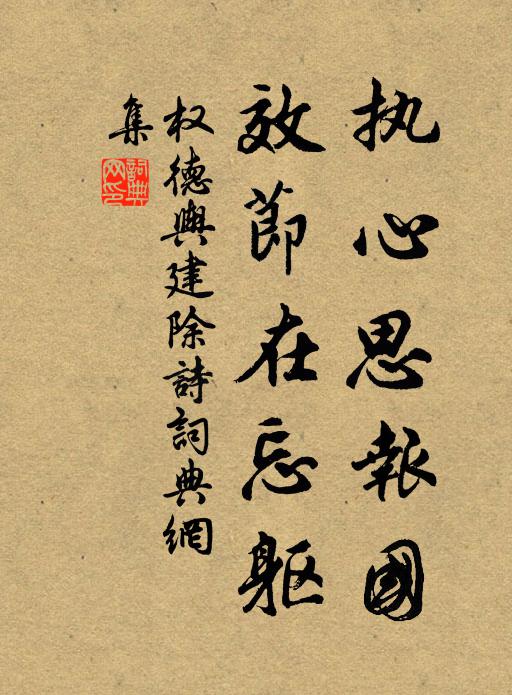 执心思報國
效節在忘躯
权德輿建除詩詞典網
集
詞典网印